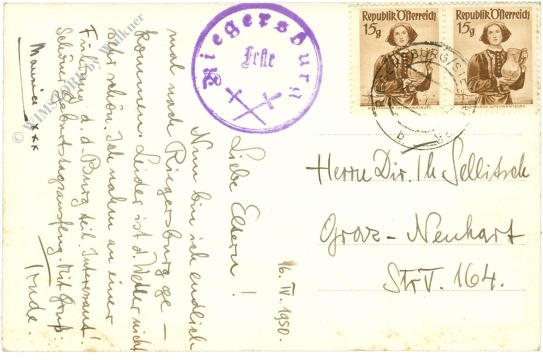 Riegersburg
Feste
Republik Österreich
15g
Republik Österreich
15g
16. IV. 1950.
Liebe Eltern!
Nun bin ich endlich
mal nach Riegersburg ge-
kommen. Leider ist d. Wetter nicht
sehr schön. Ich nahm an einer
Führung a. d. Burg teil. Interessant!
Schöner Geburtstagsausflug. Mit Gruß
Trude.
Herrn Dir. Th. Sellitsch
Graz - Neuhart
Str. V. 164.
© WIMSTORE by Walkner